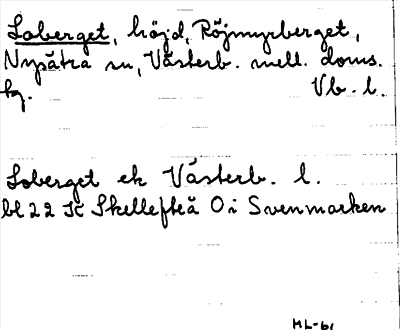 Loberget, höjd, Röjmyrberget,
Nysätra sn, Västerb. mell. doms.
hg. Vb. l.
Loberget ek Västerb. l.
bl 22 K Skellefteå O i Svenmarken